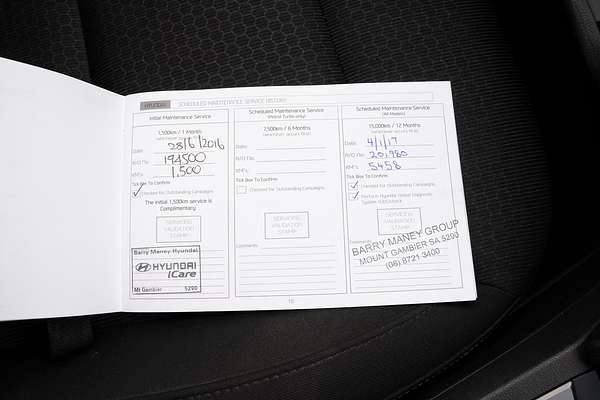 HYUNDAI
SCHEDULED MAINTENANCE SERVICE HISTORY
Initial Maintenance Service
1,500km / 1 Month
Date: 28/6/2016
R/O No: 194500
KM's: 1,500
Tick Box To Confirm
Checked for Outstanding Campaigns
The initial 1,500km service is
Complimentary
SERVICES
VALIDATION
STAMP
Barry Maney Hyundai
HYUNDAI
iCare
Mt Gambier 5290
Scheduled Maintenance Service
(Petrol Turbo only)
7,500km / 6 Months
Date:
R/O No:
KM's:
Tick Box To Confirm
Checked for Outstanding Campaigns
SERVICES
VALIDATION
STAMP
Comments:
Scheduled Maintenance Service
(All Models)
15,000km / 12 Months
Date: 4/1/17
R/O No: 201980
KM's: 5458
Tick Box To Confirm
Checked for Outstanding Campaigns
Perform Hyundai Global Diagnostic
System (GDS) check
SERVICES
VALIDATION
STAMP
BARRY MANEY GROUP
MOUNT GAMBIER SA 5290
(08) 8721 3400